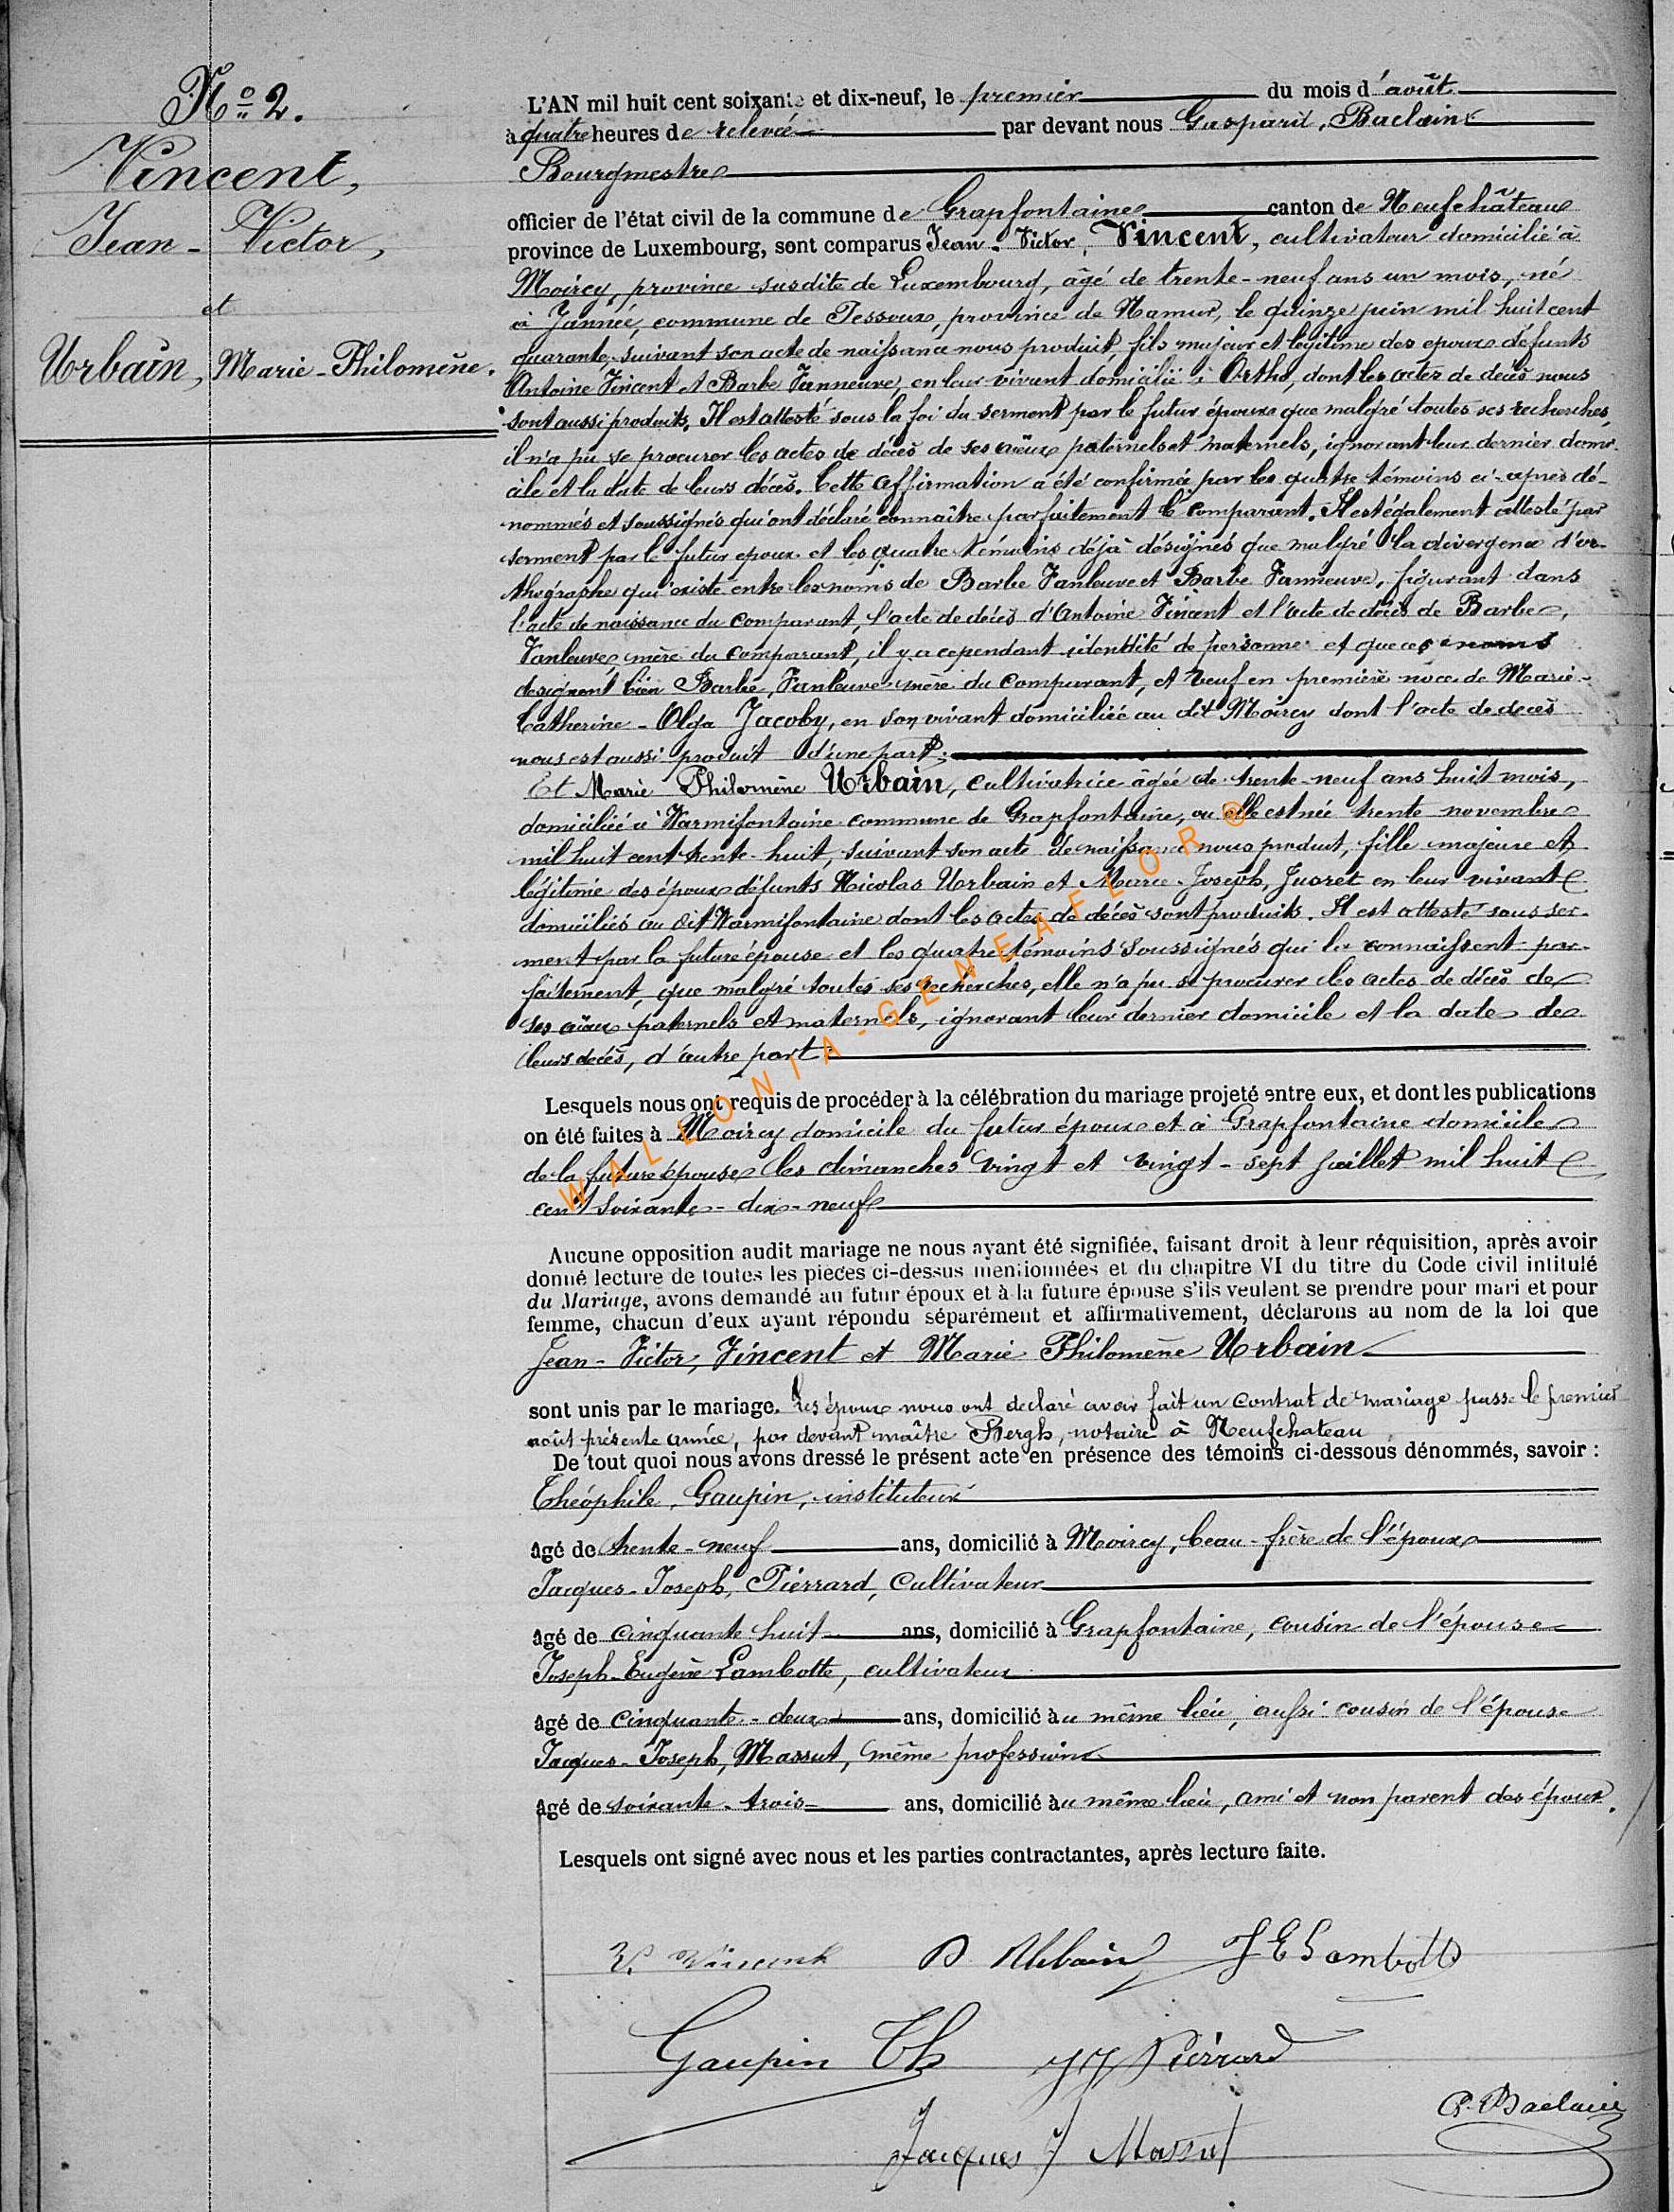 Nº 2.
Vincent,
Jean - Victor,
et
Urbain, Marie-Philomène.
L'AN mil huit cent soixante et dix-neuf, le premier du mois d'août
à quatre heures de relevée par devant nous Gaspard, Baclain
Bourgmestre
officier de l'état civil de la commune de Grapfontaine canton de Neufchâteau
province de Luxembourg, sont comparus Jean-Victor, Vincent, cultivateur domicilié à
Moircy, province susdite de Luxembourg, âgé de trente-neuf ans un mois, né
à Jannée, commune de Pessoux, province de Namur, le quinze juin mil huit cent
quarante, suivant son acte de naissance nous produit, fils majeur et légitime des époux défunts
Antoine Vincent et Barbe Vanneuve, en leur vivant domicilié à Ortho, dont les actes de décès nous
sont aussi produits. Il est attesté sous la foi du serment par le futur époux que malgré toutes ses recherches,
il n'a pu se procurer les actes de décès de ses aïeux paternels et maternels, ignorant leur dernier domi-
cile et la date de leurs décès. Cette affirmation a été confirmée par les quatre témoins ci-après dé-
nommés et soussignés qui ont déclaré connaître parfaitement le comparant. Il est également attesté par
serment par le futur époux et les quatre témoins déjà désignés que malgré la divergence d'or-
thographe qui existe entre les noms de Barbe Vanleuve et Barbe Vanneuve, figurant dans
l'acte de naissance du comparant, l'acte de décès d'Antoine Vincent et l'acte de décès de Barbe,
Vanleuve, mère du comparant, il y a cependant identité de personne et que ces noms
désignent bien Barbe, Vanleuve mère du comparant, et veuf en première noce de Marie-
Catherine-Olga Jacoby, en son vivant domiciliée au dit Moircy dont l'acte de décès
nous est aussi produit d'une part;
Et Marie Philomène Urbain, cultivatrice âgée de trente-neuf ans huit mois,
domiciliée à Warmifontaine commune de Grapfontaine, où elle est née trente novembre
mil huit cent trente-huit, suivant son acte de naissance nous produit, fille majeure et
légitime des époux défunts Nicolas Urbain et Marie-Joseph, Jusret en leur vivant
domiciliés au dit Warmifontaine dont les actes de décès sont produits. Il est attesté sous ser-
ment par la future épouse et les quatre témoins soussignés qui la connaissent par-
faitement, que malgré toutes ses recherches, elle n'a pu se procurer les actes de décès de
ses aïeux paternels et maternels, ignorant leur dernier domicile et la date de
leurs décès, d'autre part
Lesquels nous ont requis de procéder à la célébration du mariage projeté entre eux, et dont les publications
on été faites à Moircy domicile du futur époux et à Grapfontaine domicile
de la future épouse les dimanches vingt et vingt-sept juillet mil huit
cent soixante-dix-neuf
Aucune opposition audit mariage ne nous ayant été signifiée, faisant droit à leur réquisition, après avoir
donné lecture de toutes les pièces ci-dessus mentionnées et du chapitre VI du titre du Code civil intitulé
du Mariage, avons demandé au futur époux et à la future épouse s'ils veulent se prendre pour mari et pour
femme, chacun d'eux ayant répondu séparément et affirmativement, déclarons au nom de la loi que
Jean-Victor, Vincent et Marie Philomène Urbain
sont unis par le mariage. Les époux nous ont déclaré avoir fait un contrat de mariage passé le premier
août présente année, par devant maître Bergh, notaire à Neufchateau
De tout quoi nous avons dressé le présent acte en présence des témoins ci-dessous dénommés, savoir :
Théophile, Gaupin, instituteur
âgé de trente-neuf ans, domicilié à Moircy, beau-frère de l'époux
Jacques-Joseph, Pierrard, cultivateur
âgé de cinquante huit ans, domicilié à Grapfontaine, cousin de l'épouse
Joseph-Eugène Lambotte, cultivateur
âgé de cinquante-deux ans, domicilié au même lieu, aussi cousin de l'épouse
Jacques-Joseph, Massut, même profession
âgé de soixante-trois ans, domicilié au même lieu, ami et non parent des époux.
Lesquels ont signé avec nous et les parties contractantes, après lecture faite.
V. Vincent P. Urbain J E Lambotte
Gaupin Th J J Pierrard
G. Baclain
Jacques J Massut
WALLONIA-GENEAFLOR®